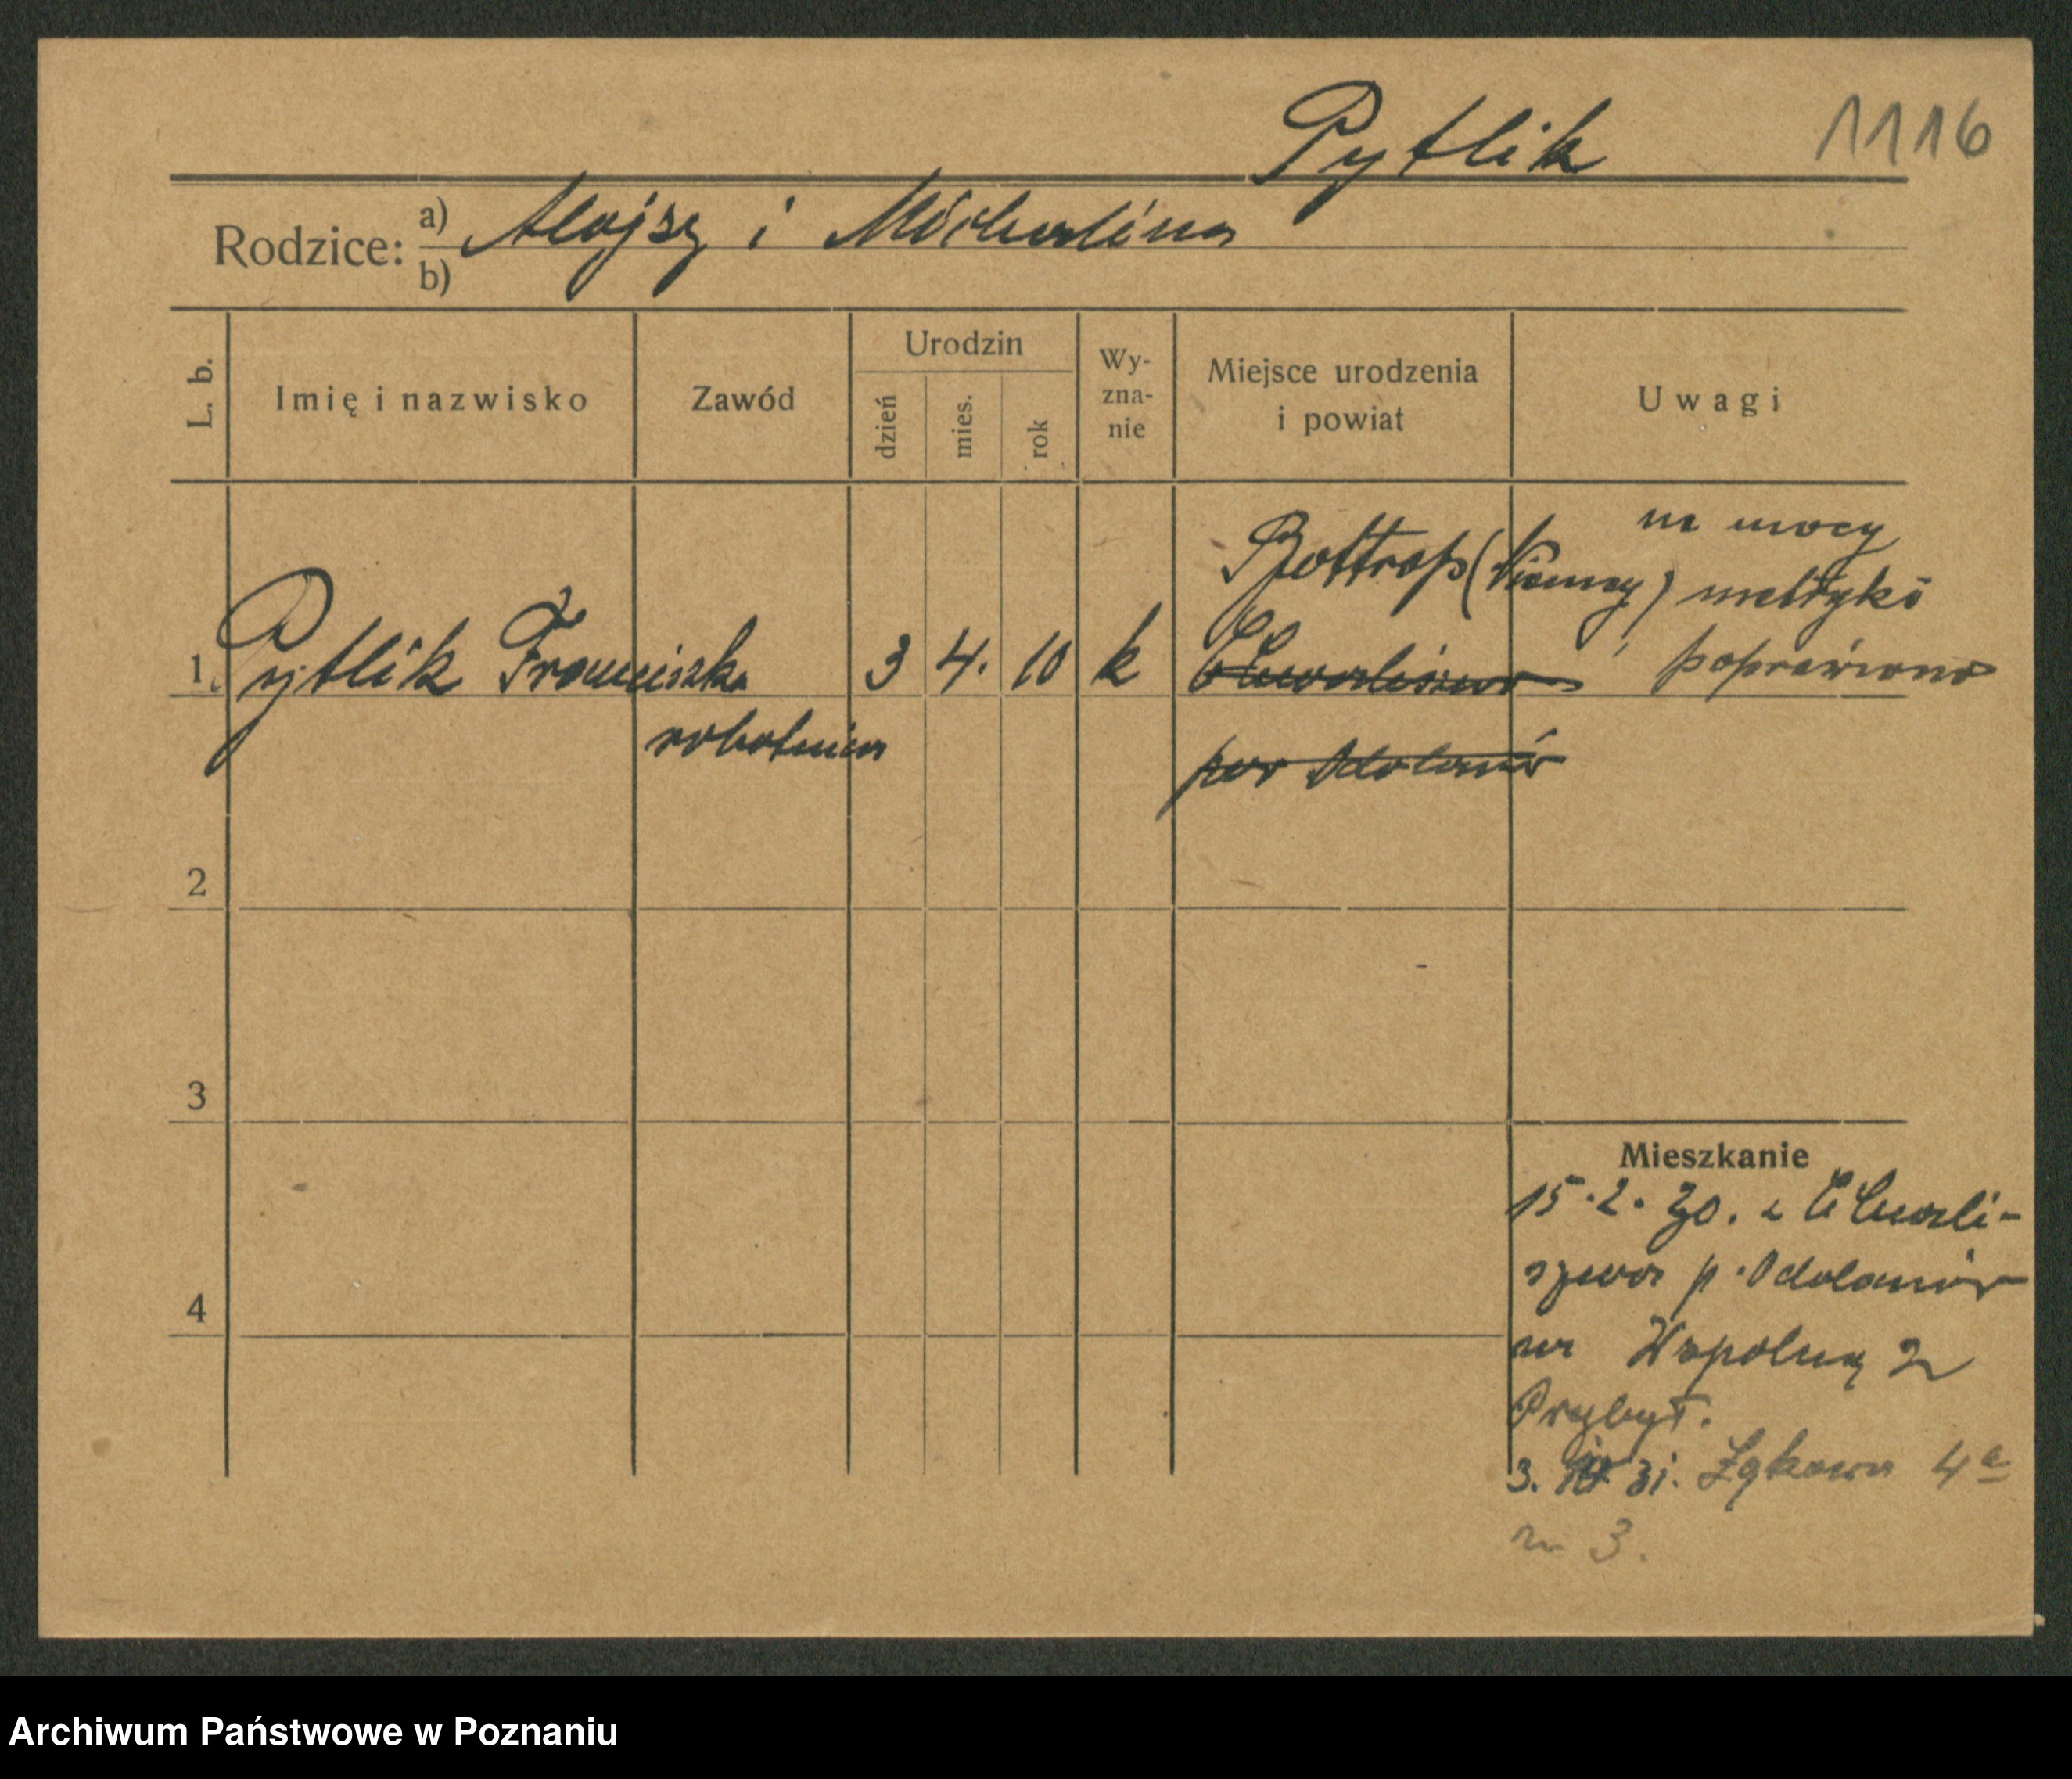 Pytlik 1116
Rodzice: a) Alojzy i Michalina
b)
L. b. Imię i nazwisko Zawód Urodzin dzień mies. rok Wy-zna-nie Miejsce urodzenia i powiat Uwagi
na mocy
Bottrop (Niemcy) metryki
1. Pytlik Franciszka 3 4. 10 k Chwaliszewo poprawiono
robotnica
pow Odolanów
2
3
Mieszkanie
15.2.30. z Chwali-
szewa p. Odolanów
4
na Wspolną 2
Przybył.
3. 31. Łąkowa 4a
3.
Archiwum Państwowe w Poznaniu